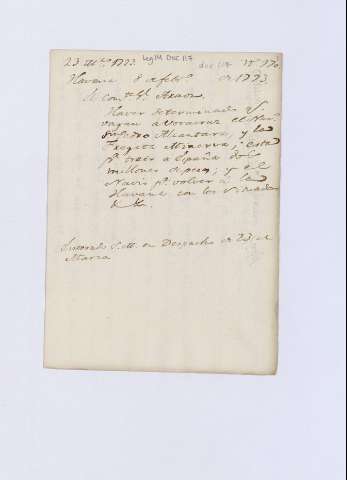 23 M.zo 1793 Leg 14 Doc 117
Havana 8 de feb.o de 1793.
El Com.te G.l Araoz.
Haver determinado q.e
vayan a Veracruz el Nav.o
S.n Pedro Alcantara, y la
Fragta Minerva; esta
p.a traer a España dos
millones de pesos; y el
Navio p.a volver a la
Havana con los Situados
&c.
Enterado S.M. en Despacho de 23 de
Marzo